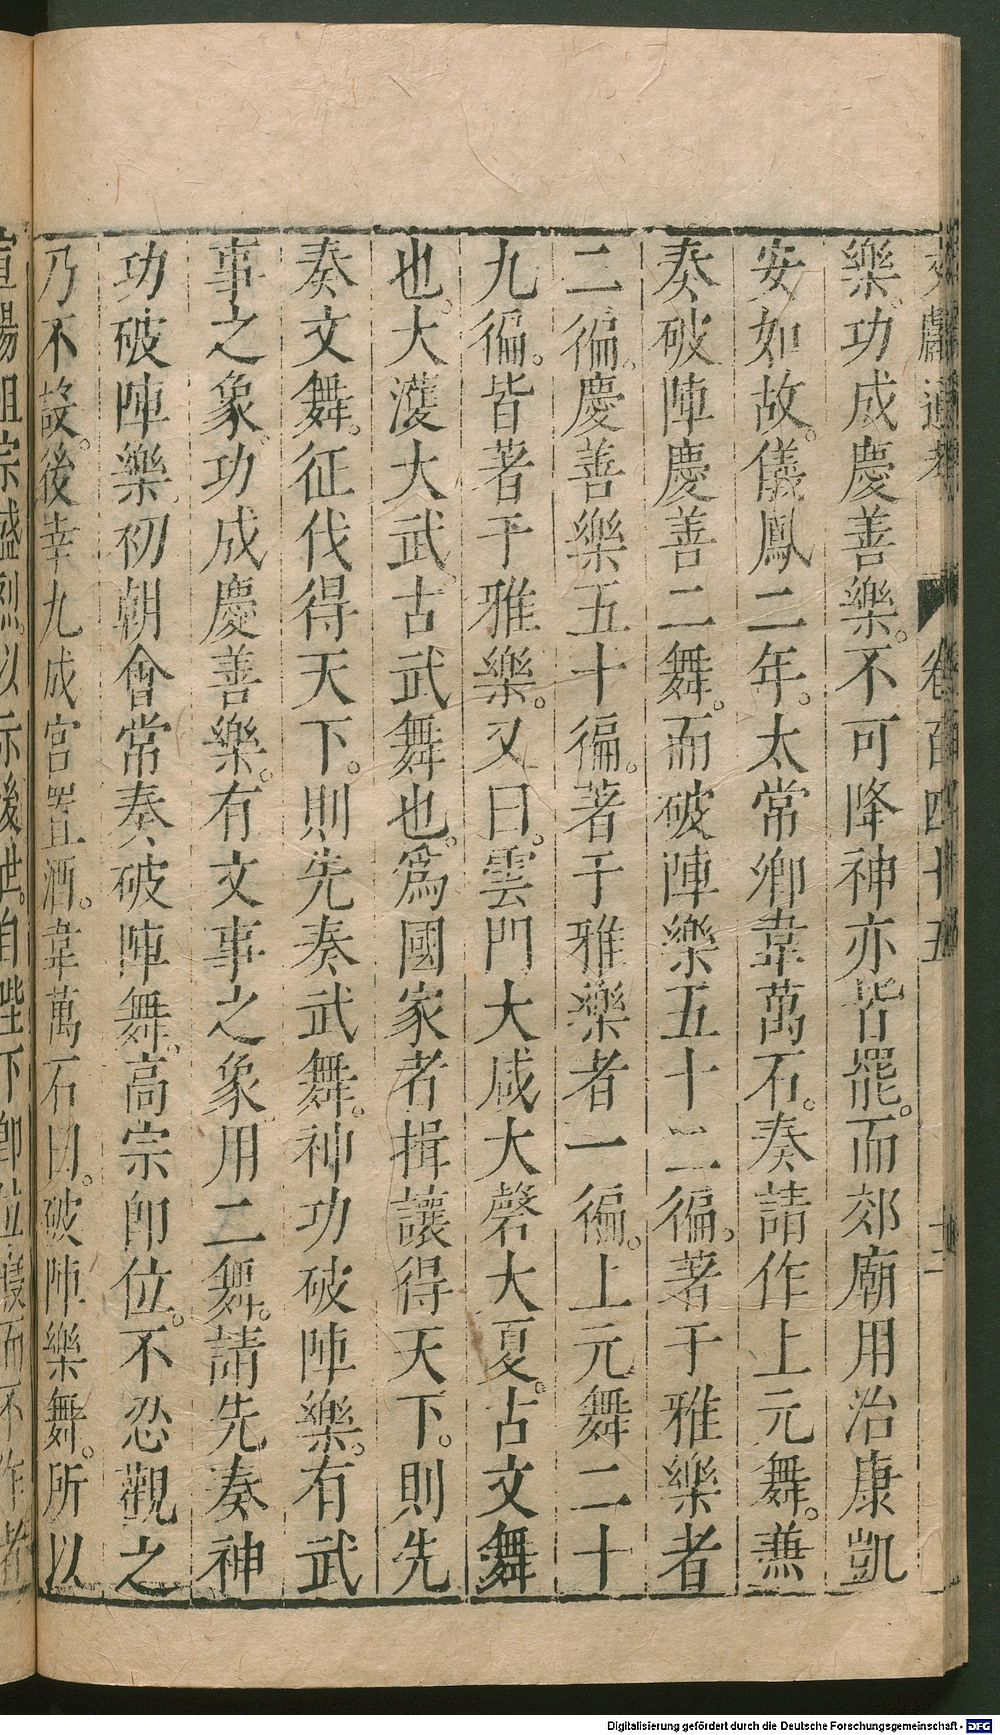 文獻通考 卷百四十五 十二
樂。功成慶善樂。不可降神亦皆罷。而郊廟用治康凱
安如故。儀鳳二年。太常卿韋萬石。奏請作上元舞。兼
奏破陣慶善二舞。而破陣樂五十二徧。著于雅樂者
二徧。慶善樂五十徧。著于雅樂者一徧。上元舞二十
九徧。皆著于雅樂。又曰。雲門大咸大磬大夏。古文舞
也。大濩大武。古武舞也。爲國家者揖讓得天下。則先
奏文舞。征伐得天下。則先奏武舞。神功破陣樂。有武
事之象。功成慶善樂。有文事之象。用二舞。請先奏神
功破陣樂初朝會常奏破陣舞。高宗卽位。不忍觀之
乃不設。後幸九成宮置酒。韋萬石曰。破陣樂舞。所以
宣揚祖宗盛烈。以示後世。自陛下卽位寢而不作者
Digitalisierung gefördert durch die Deutsche Forschungsgemeinschaft - DFG